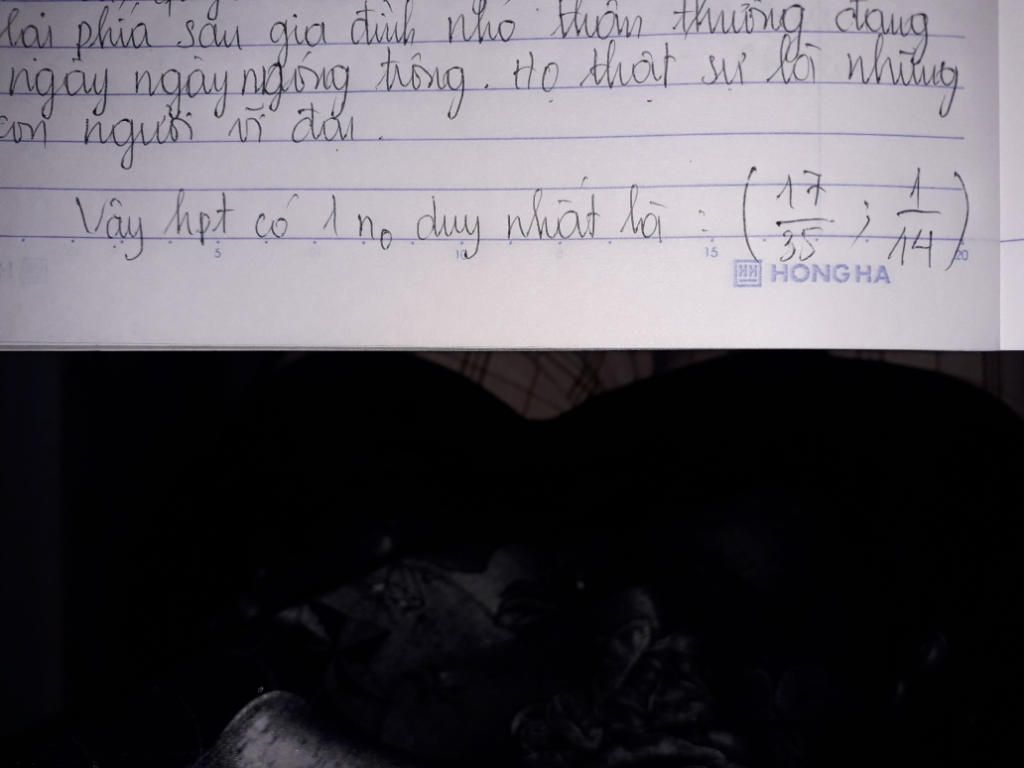 lại phía sau gia đình nhỏ thân thương đang
ngày ngày ngóng trông. Họ thật sự là những
con người vĩ đại.
Vậy hpt có 1 no duy nhất là : (17/35 ; 1/14)
5 10 15 20
HH HONG HA